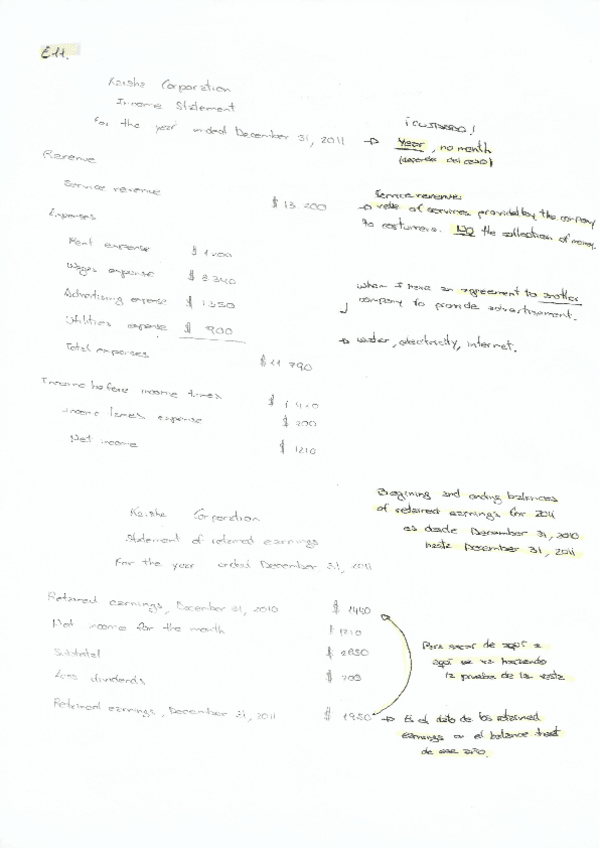 E11.
Keisha Corporation
Income Statement
For the year ended December 31, 2011 → Year, no month
¡CUIDADO!
Revenue
Service revenue $ 13 200
Service revenue:
of services provided by the company
to costumers. NO the collection of money.
Expenses
Rent expense $
Wages expense $ 8 340
Advertising expense $ 1350
When I have an agreement to another
company to provide advertisement.
Utilities expense $ 900
→ water, electricity, internet.
Total expenses $ 11 790
Income before income taxes $ 1 410
income taxes expense $ 200
Net income $ 1210
Keisha Corporation
Statement of retained earnings
For the year ended December 31, 2011
Begining and ending balances
of retained earnings for 2011
es desde December 31, 2010
hasta December 31, 2011
Retained earnings, December 31, 2010 $ 1440
Net income for the month $ 1210
Subtotal $ 2650
Less dividends $ 700
Retained earnings, December 31, 2011 $ 1950
Para sacar de aquí a
aquí se va haciendo
la prueba de la resta
→ Es el dato de los retained
earnings en el balance sheet
de ese año.